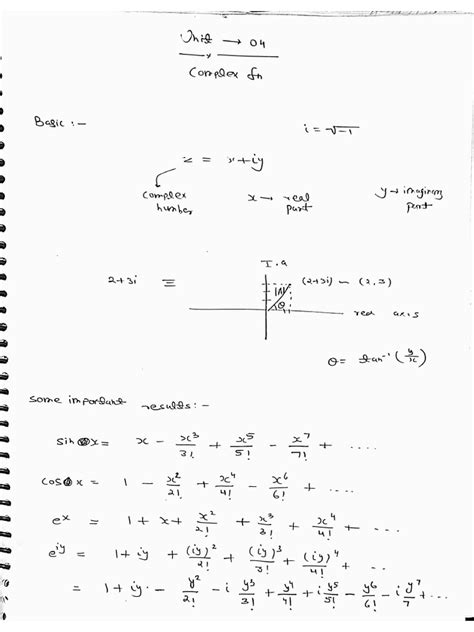 Unit → 04
Complex fn
Basic :-
i = √-1
z = x+iy
complex number
x → real part
y → imaginary part
I.a
2+3i ≡
(2+3i) — (2,3)
|z|
θ
real axis
θ = tan⁻¹ (y/x)
some important results :-
sin x = x - x³/3! + x⁵/5! - x⁷/7! + ....
cos x = 1 - x²/2! + x⁴/4! - x⁶/6! + ....
eˣ = 1 + x + x²/2! + x³/3! + x⁴/4! + ...
e^iy = 1 + iy + (iy)²/2! + (iy)³/3! + (iy)⁴/4! + ...
= 1 + iy - y²/2! - i y³/3! + y⁴/4! + i y⁵/5! - y⁶/6! - i y⁷/7 + ...